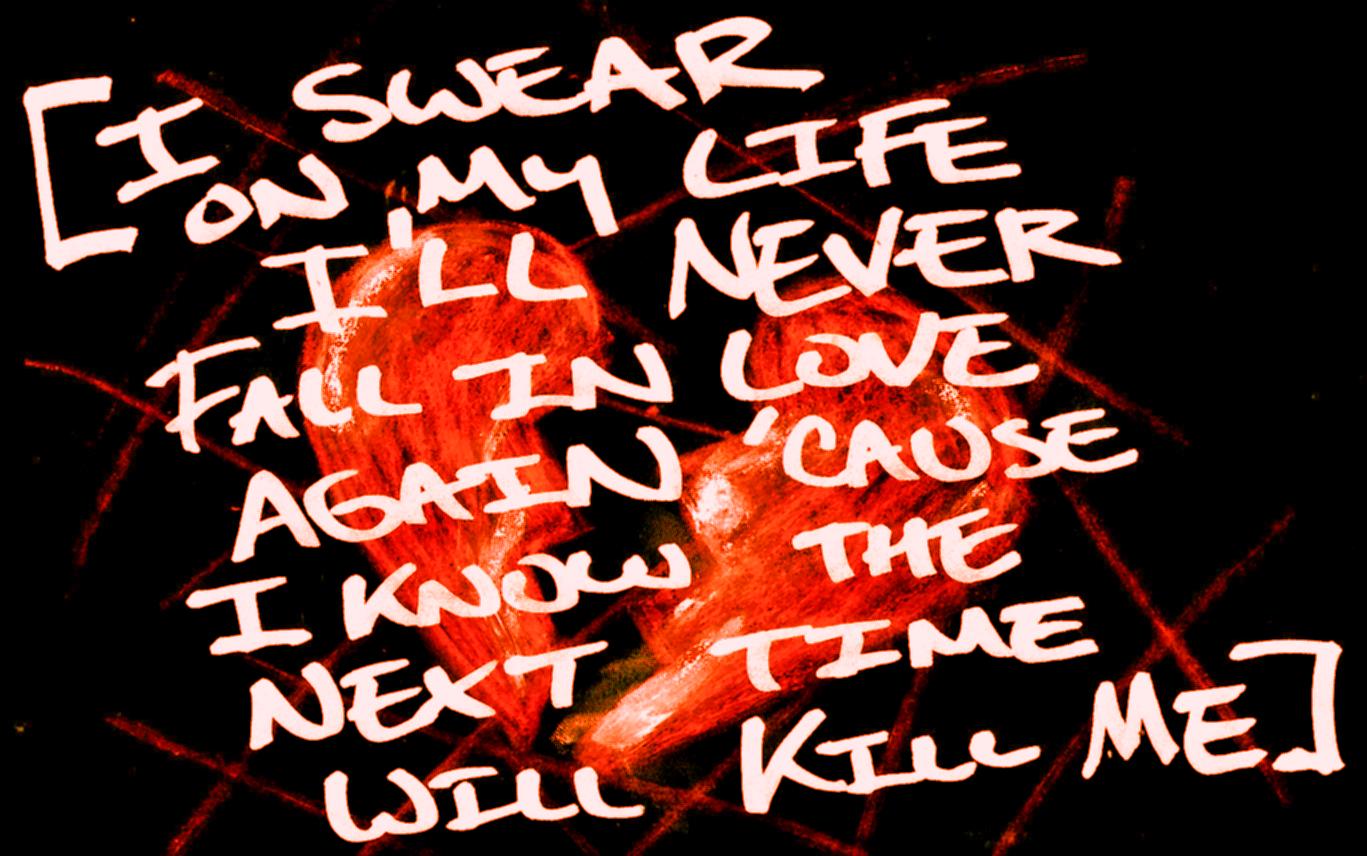 [I SWEAR
ON MY LIFE
I'LL NEVER
FALL IN LOVE
AGAIN 'CAUSE
I KNOW THE
NEXT TIME
WILL KILL ME]